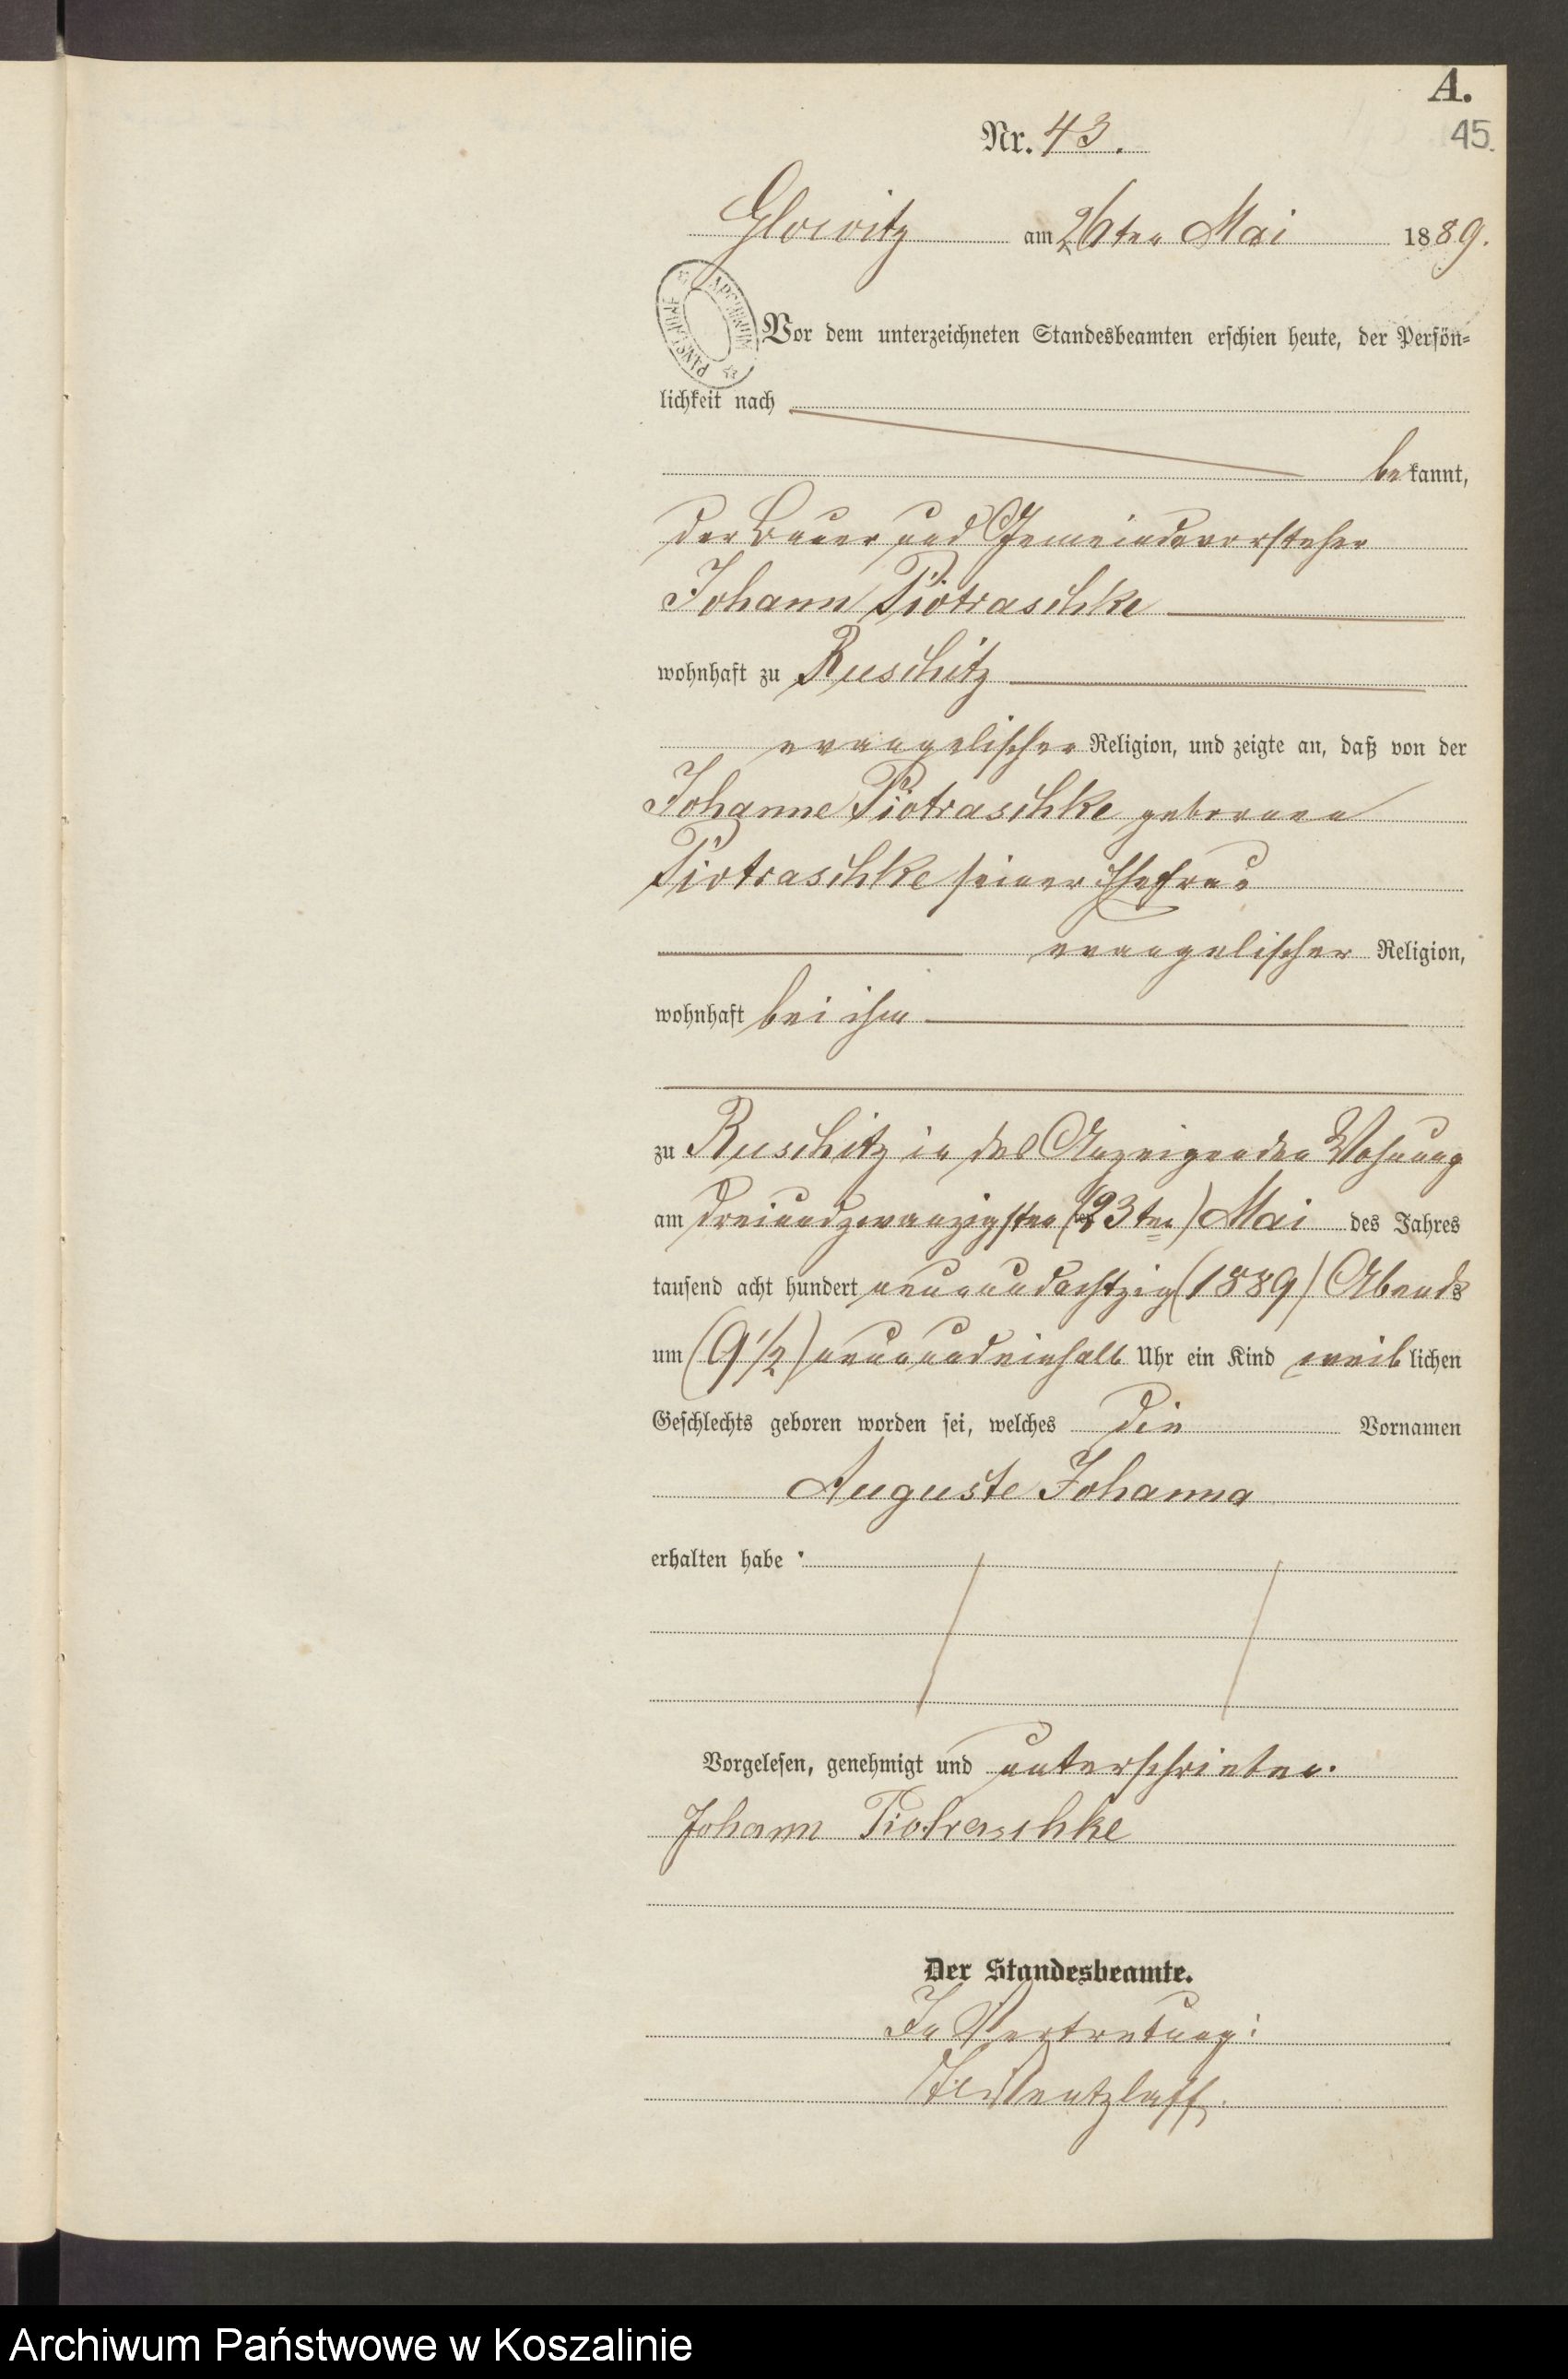 A.
45.
Nr. 43.
Glowitz am 26ten Mai 1889.
ARCHIWUM PAŃSTWOWE
Vor dem unterzeichneten Standesbeamten erschien heute, der Persön-
lichkeit nach
bekannt,
der Bauer und Gemeindevorsteher
Johann Piotraschke
wohnhaft zu Ruschitz
evangelischer Religion, und zeigte an, daß von der
Johanne Piotraschke geborenen
Piotraschke seiner Ehefrau
evangelischer Religion,
wohnhaft bei ihm
zu Ruschitz in des Anzeigenden Wohnung
am dreiundzwanzigsten (23ten) Mai des Jahres
tausend acht hundert neunundachtzig (1889) Abends
um (9 1/2) neunundeinhalb Uhr ein Kind weiblichen
Geschlechts geboren worden sei, welches die Vornamen
Auguste Johanna
erhalten habe
Vorgelesen, genehmigt und unterschrieben.
Johann Piotraschke
Der Standesbeamte.
In Vertretung:
Wentzlaff.
Archiwum Państwowe w Koszalinie